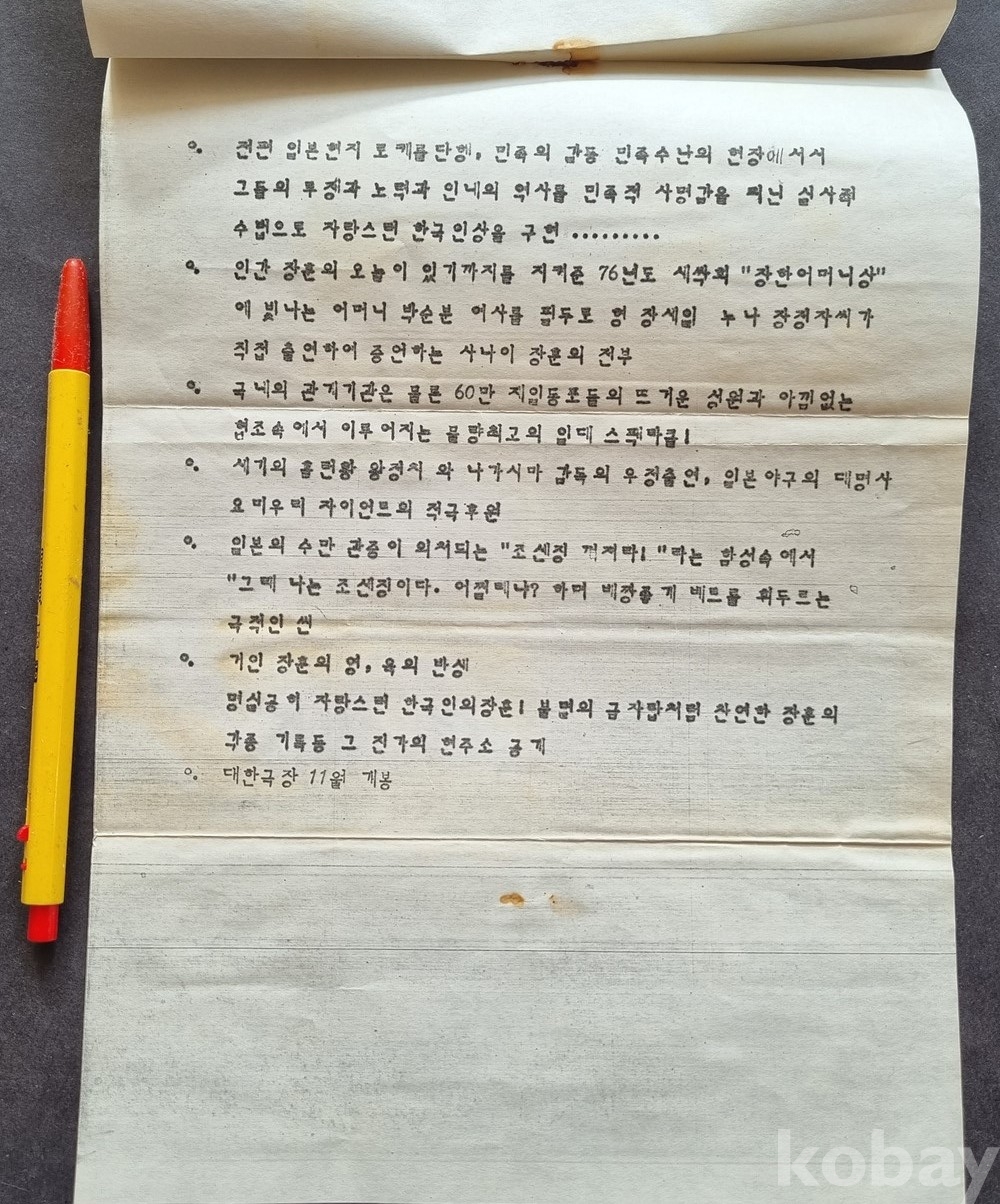 o. 전편 일본현지 로케를단행, 민족의 감동 민족수난의 현장에서서
그들의 투쟁과 노력과 인내의 역사를 민족적 사명감을 띄닌 실사적
수법으로 자랑스런 한국인상을 구현 .........
o. 인간 장훈의 오늘이 있기까지를 지켜준 76년도 새싹회 "장한어머니상"
에 빛나는 어머니 박순분 여사를 필두로 형 장세일 누나 장정자씨가
직접 출연하여 증언하는 사나이 장훈의 전부
o. 국내의 관계기관은 물론 60만 재일동포들의 뜨거운 성원과 아낌없는
협조속에서 이루어지는 물량최고의 일대 스펙타클!
o. 세기의 홈런왕 왕정치 와 나가시마 감독의 우정출연, 일본야구의 대명사
요미우리 자이언트의 적극후원
o. 일본의 수만 관중이 외쳐되는 "조센징 꺼져라! "라는 함성속에서
"그래 나는 조센징이다. 어쩔테냐? 하며 배짱좋게 배트를 휘두르는
극적인 씬
o. 기인 장훈의 영, 육의 반생
명실공히 자랑스런 한국인의장훈! 불멸의 금자탑처럼 찬연한 장훈의
각종 기록등 그 진가의 현주소 공개
o. 대한극장 11월 개봉
kobay